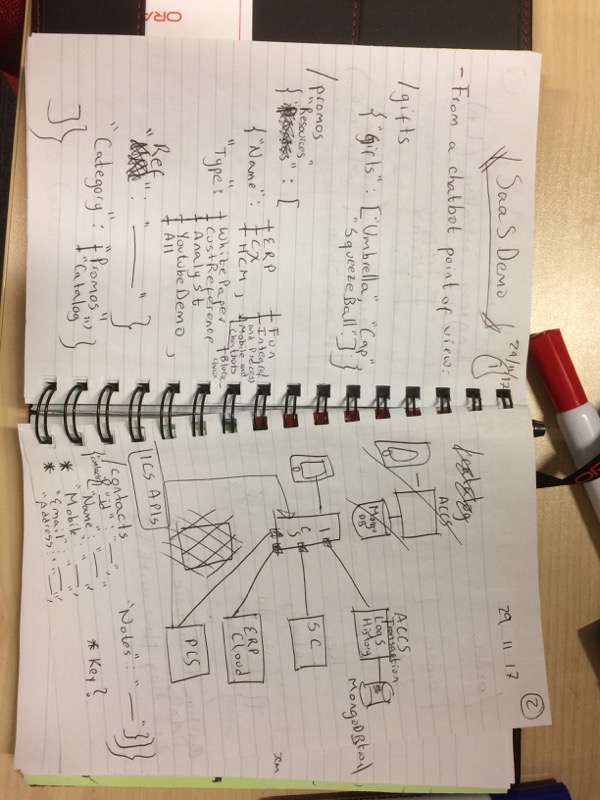 SaaS Demo
29/11/17
1
- From a chatbot point of view:
/gifts
{ "Gifts": ["Umbrella", "Cap"
"Squeeze Ball"] }
/promos
"Resources"
{ : [
{"Name": ERP
CX
HCM,
Fun
Integrat
and Process
Mobile and
Chatbots
Block
chain
"Type": WhitePaper
CustReference
Analyst
YoutubeDemo
All ,
Ref
" ": "———" }
"Category": "Promos",
"Catalog" }
] }
2
29 11 17
/catalog
ACCS
Mongo
DB
ACCS
Transaction
Logs
History
MongoDB
I
C
S
SC
ERP
Cloud
PCS
ICS APIs
/contacts
{contacts [{ "id": "—",
"Name": "—",
* Mobile: "—",
* "Email": "—",
"Address": "—",
"Notes": "—" }]}
* Key?
ORA